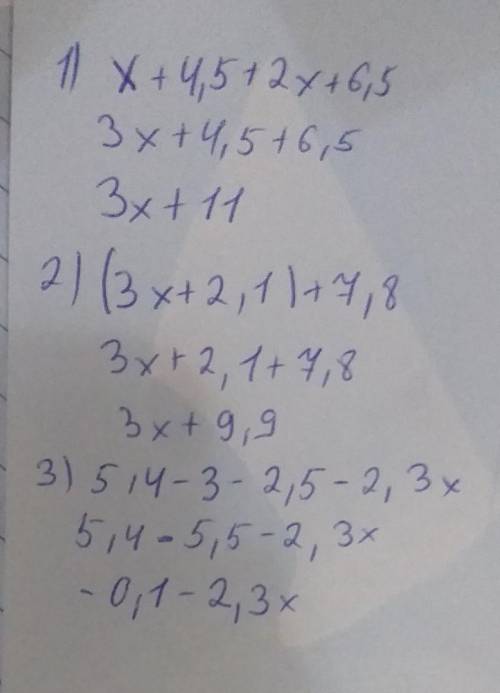 1) x+4,5+2x+6,5
3x+4,5+6,5
3x+11
2) (3x+2,1)+7,8
3x+2,1+7,8
3x+9,9
3) 5,4-3-2,5-2,3x
5,4-5,5-2,3x
-0,1-2,3x